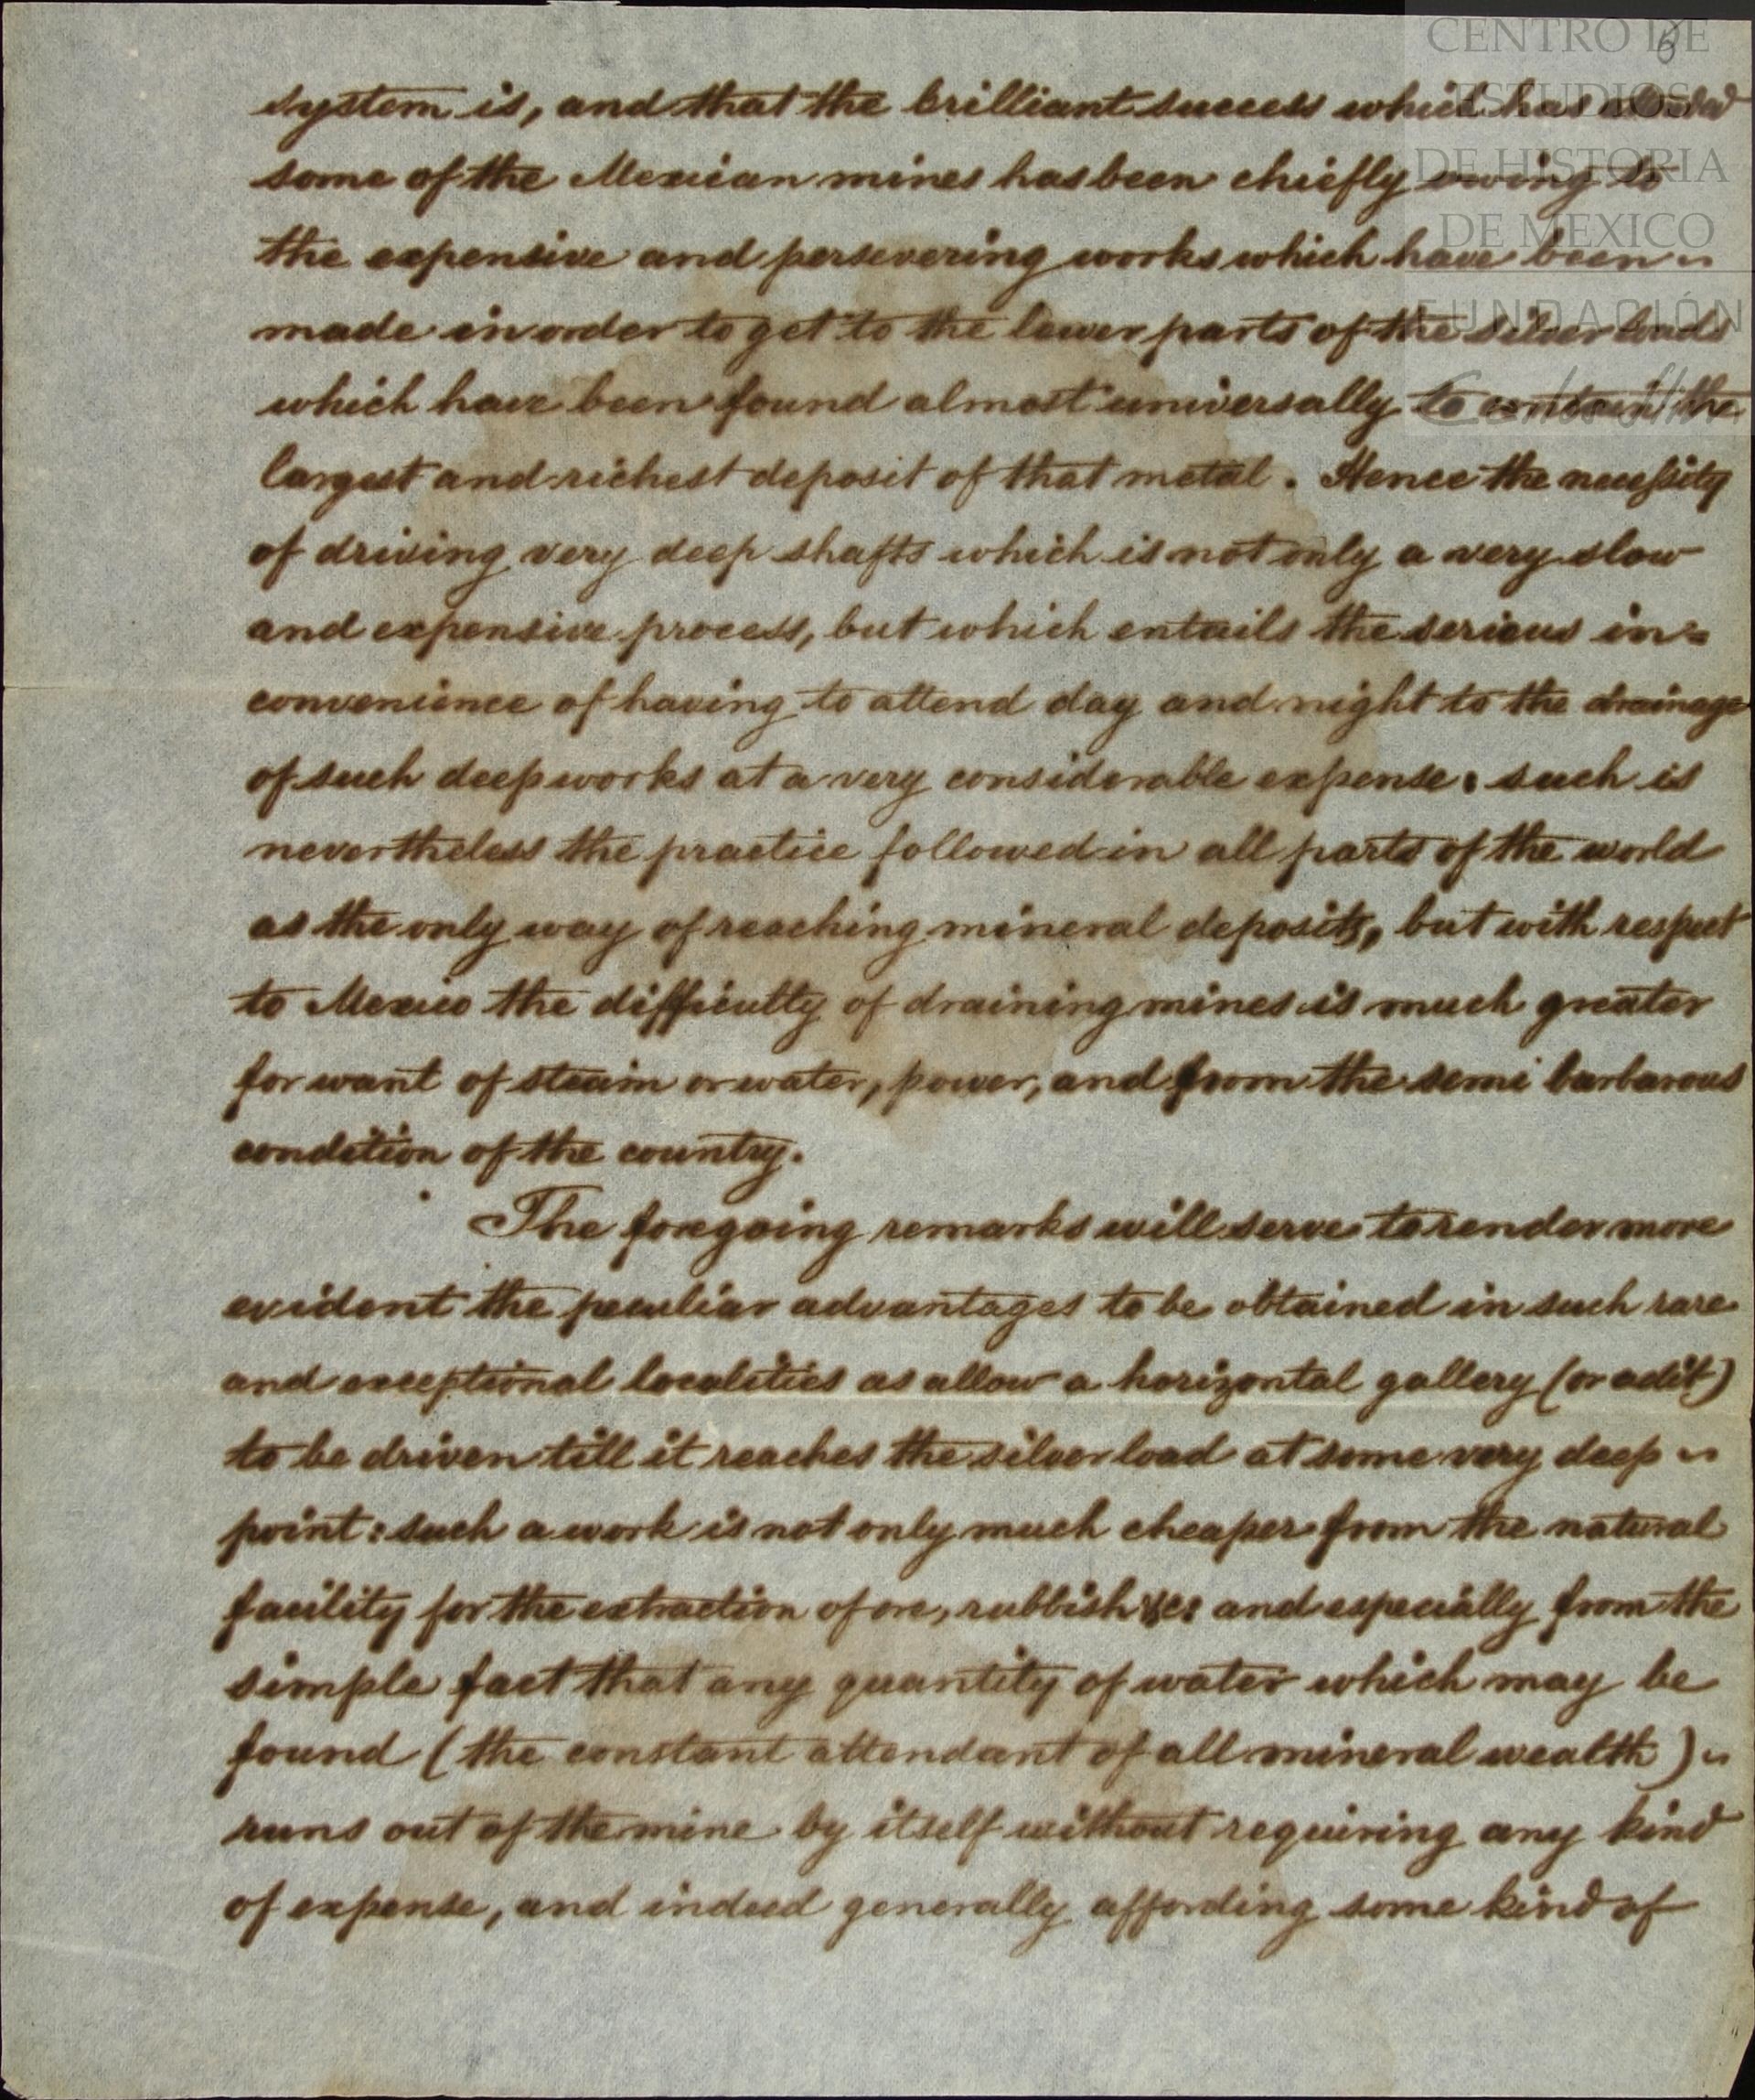 CENTRO DE
ESTUDIOS
DE HISTORIA
DE MEXICO
FUNDACIÓN
6
system is, and that the brilliant success which has
some of the Mexican mines has been chiefly owing to
the expensive and persevering works which have been
made in order to get to the lower parts of the silver loads
which have been found almost universally to contain the
largest and richest deposit of that metal. Hence the necessity
of driving very deep shafts which is not only a very slow
and expensive process, but which entails the serious in=
convenience of having to attend day and night to the drainage
of such deep works at a very considerable expense: such is
nevertheless the practice followed in all parts of the world
as the only way of reaching mineral deposits, but with respect
to Mexico the difficulty of draining mines is much greater
for want of steam or water, power, and from the semi barbarous
condition of the country.
The foregoing remarks will serve to render more
evident the peculiar advantages to be obtained in such rare
and exceptional localities as allow a horizontal gallery (or adit)
to be driven till it reaches the silver load at some very deep
point: such a work is not only much cheaper from the natural
facility for the extraction of ore, rubbish &c: and especially from the
simple fact that any quantity of water which may be
found (the constant attendant of all mineral wealth)
runs out of the mine by itself without requiring any kind
of expense, and indeed generally affording some kind of